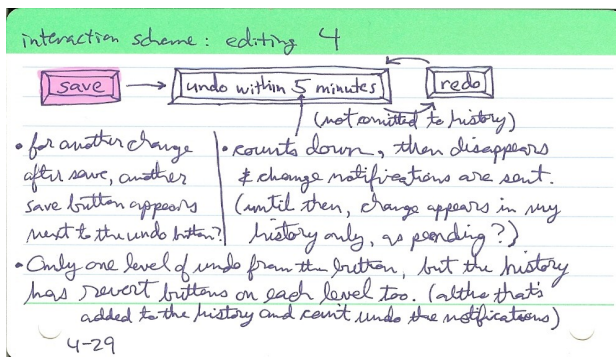 interaction scheme: editing 4
save undo within 5 minutes redo
(not omitted to history)
• for another change
after save, another
save button appears
next to the undo button?
• counts down, then disappears
& change notifications are sent.
(until then, change appears in my
history only, as pending?)
• Only one level of undo from the button, but the history
has revert buttons on each level too. (altho that's
added to the history and can't undo the notifications)
4-29